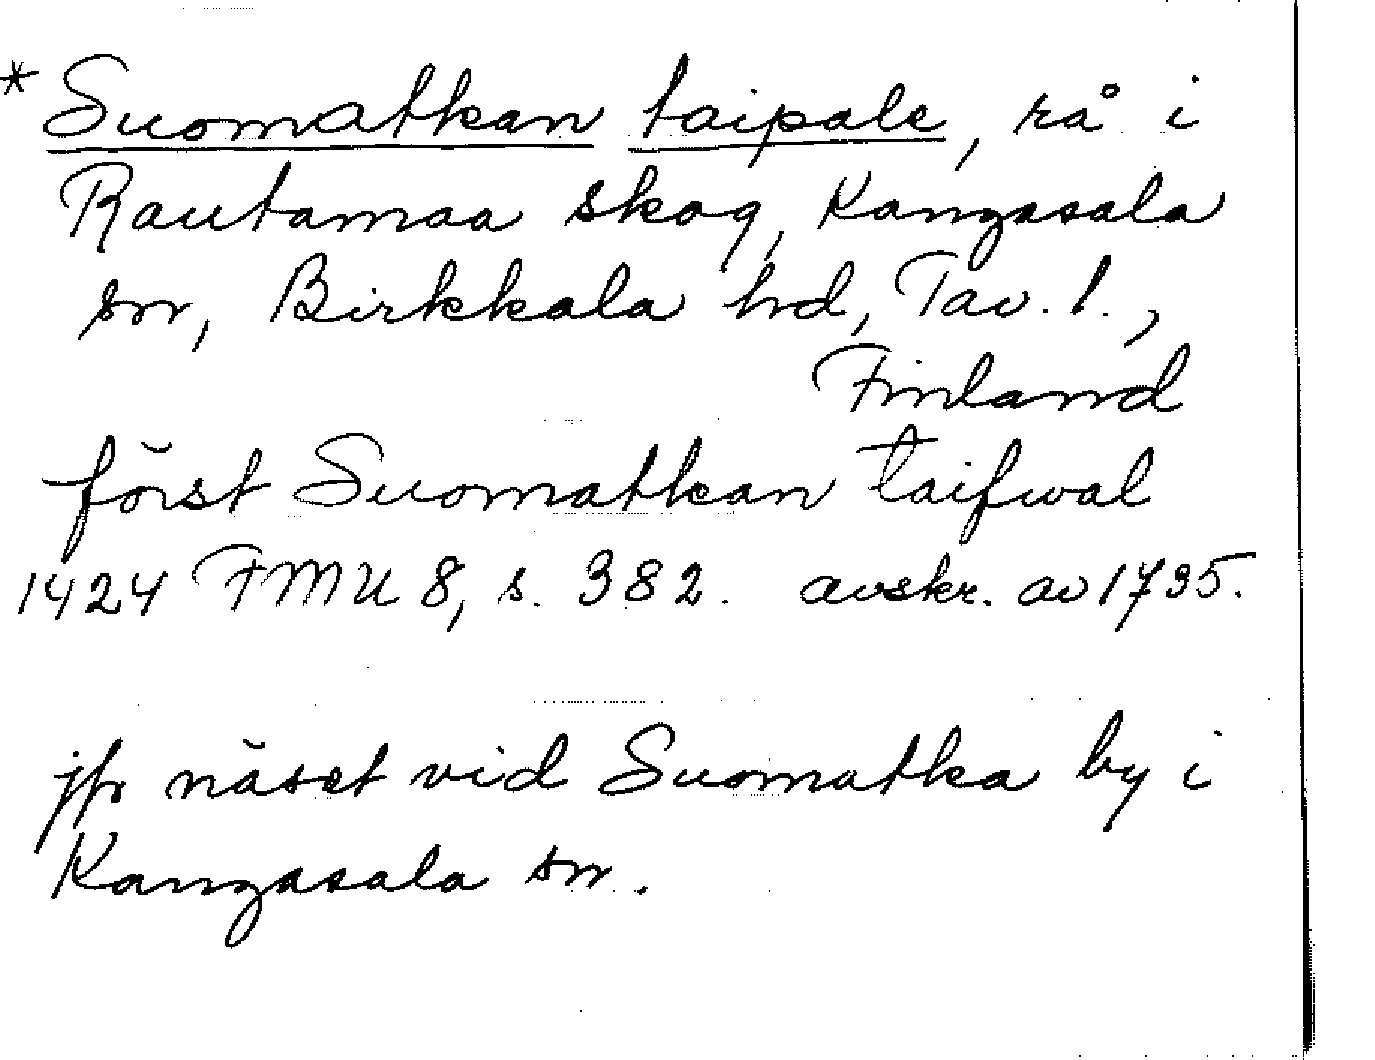 * Suomatkan taipale, rå i
Rautamaa skog, Kangasala
sn, Birkkala hd, Tav. l.,
Finland
först Suomatkan taifwal
1424 FMU 8, s. 382. avskr. av 1735.
jfr näset vid Suomatka by i
Kangasala sn.